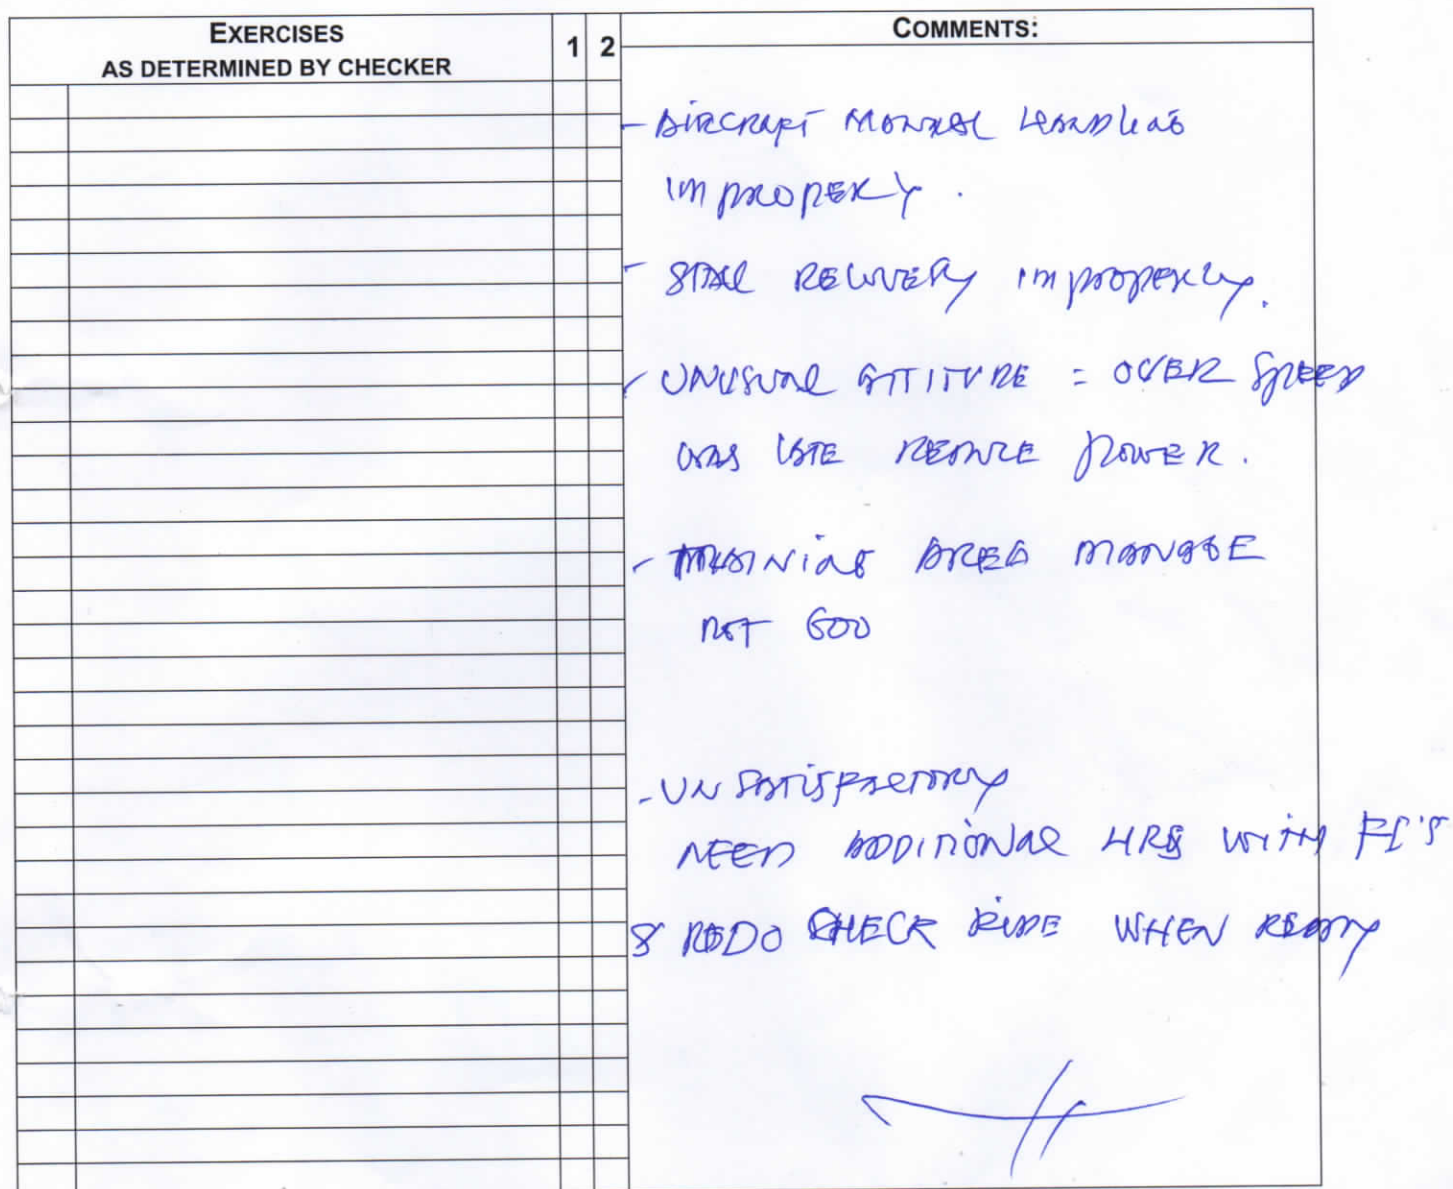 EXERCISES
AS DETERMINED BY CHECKER
1 2
COMMENTS:
- AIRCRAFT MANUAL HANDLING
IMPROPERLY.
- STALL RECOVERY IMPROPERLY.
- UNUSUAL ATTITUDE = OVER SPEED
WAS LATE REDUCE POWER.
- TRAINING AREA MANAGE
NOT GOOD
- UNSATISFACTORY
NEED ADDITIONAL HRS WITH FI'S
& REDO CHECK RIDE WHEN READY